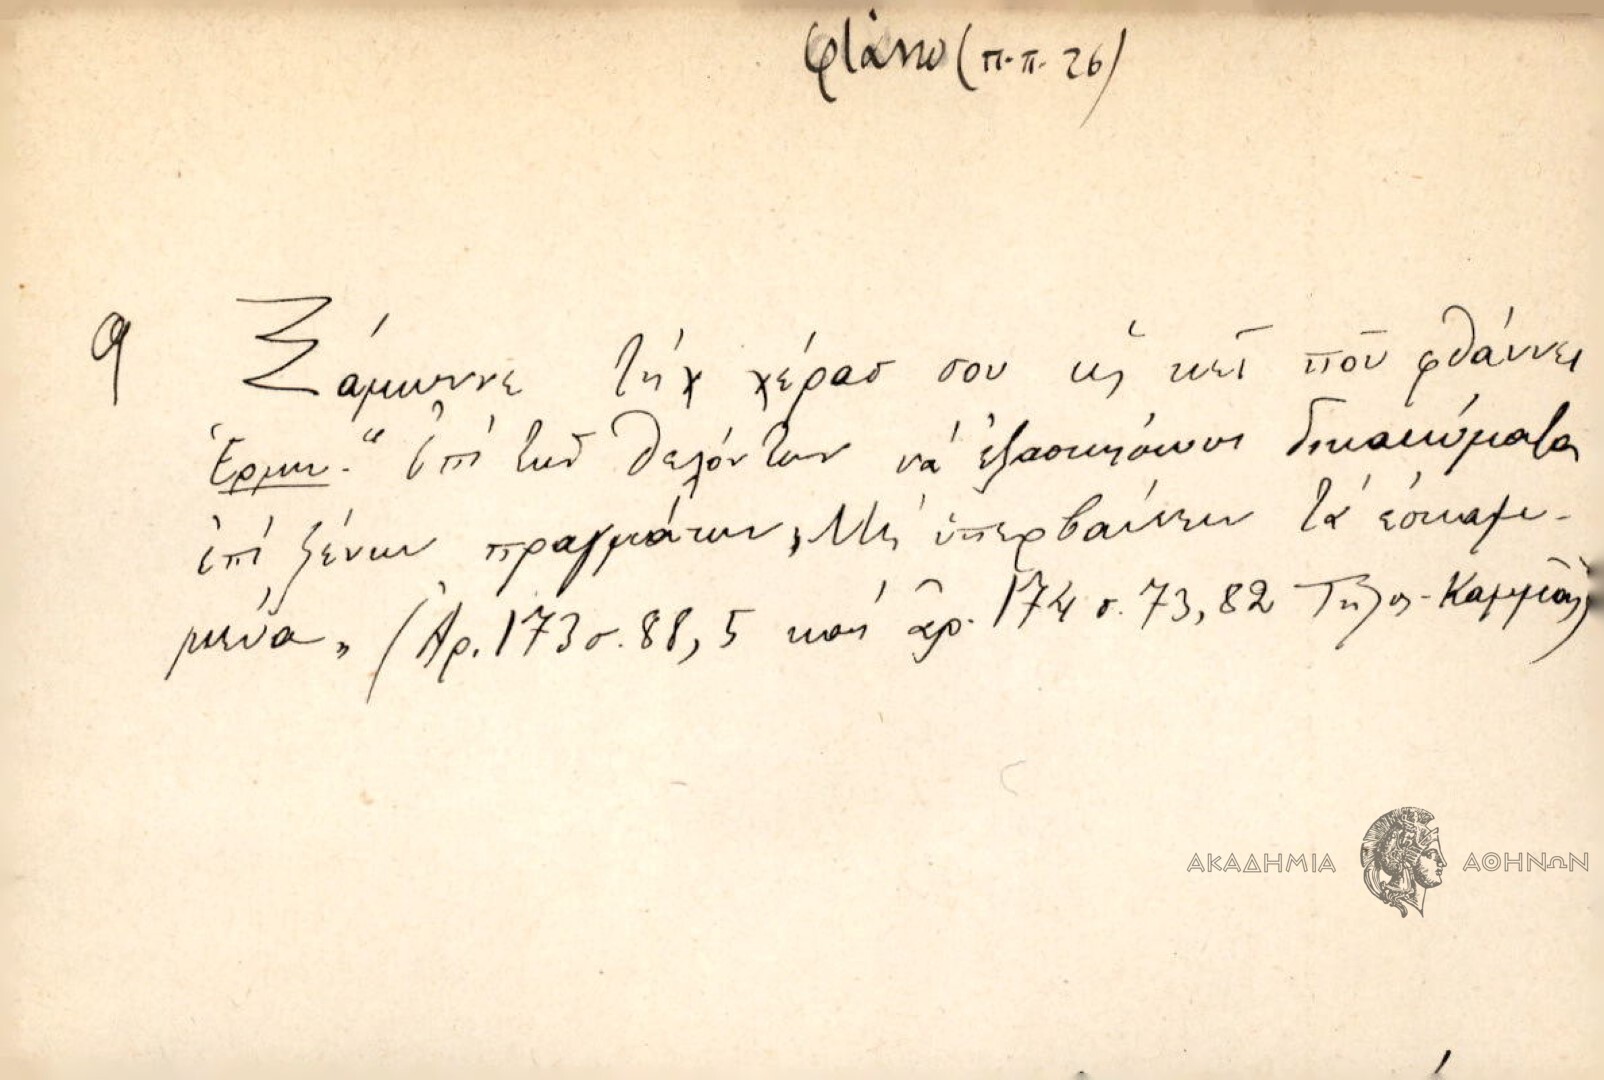 φτάνω (π.π. 26)
9 Ξάμωννε τὴχ χέρασ σου ὣς κεῖ ποῦ φθάννει
Ἑρμην. " Ἐπὶ τῶν θελόντων νὰ ἐξασκήσωσι δικαιώματα
ἐπὶ ξένων πραγμάτων, Μὴ ὑπερβαίνειν τὰ ἐσκαμ-
μένα „ (Ἀρ. 173 σ. 88, 5 καὶ ἀρ. 174 σ. 73, 82 Τῆλος - Καμμᾶς)
ΑΚΑΔΗΜΙΑ ΑΘΗΝΩΝ